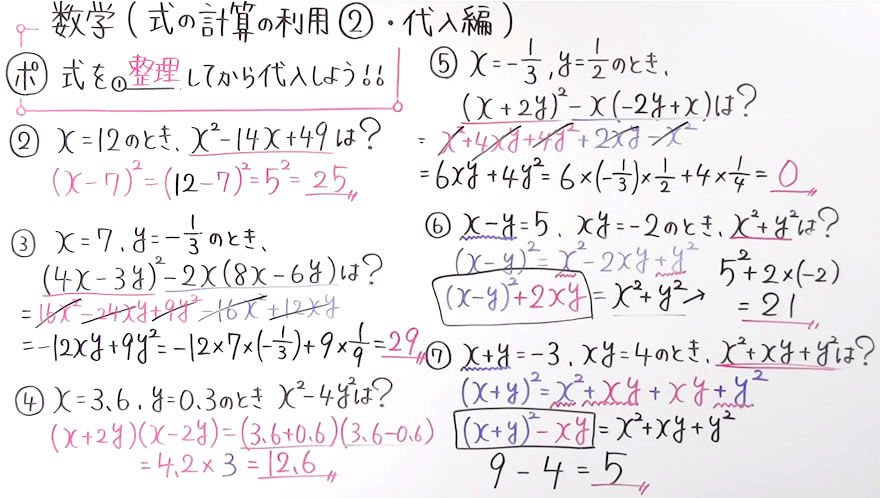 数学(式の計算の利用②・代入編)
ポ 式を①整理してから代入しよう!!
② x=12のとき、x²-14x+49は?
(x-7)²=(12-7)²=5²=25
③ x=7、y=-1/3のとき、
(4x-3y)²-2x(8x-6y)は?
=16x²-24xy+9y²-16x²+12xy
=-12xy+9y²=-12×7×(-1/3)+9×1/9=29
④ x=3.6、y=0.3のとき x²-4y²は?
(x+2y)(x-2y)=(3.6+0.6)(3.6-0.6)
=4.2×3=12.6
⑤ x=-1/3、y=1/2のとき、
(x+2y)²-x(-2y+x)は?
=x²+4xy+4y²+2xy-x²
=6xy+4y²=6×(-1/3)×1/2+4×1/4=0
⑥ x-y=5、xy=-2のとき、x²+y²は?
(x-y)²=x²-2xy+y²
(x-y)²+2xy=x²+y²→ 5²+2×(-2)
=21
⑦ x+y=-3、xy=4のとき、x²+xy+y²は?
(x+y)²=x²+xy+xy+y²
(x+y)²-xy=x²+xy+y²
9-4=5